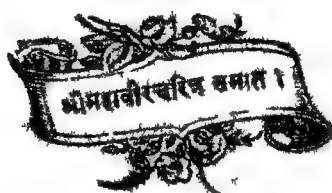 श्रीमहावीरचरित्र समाप्त ।